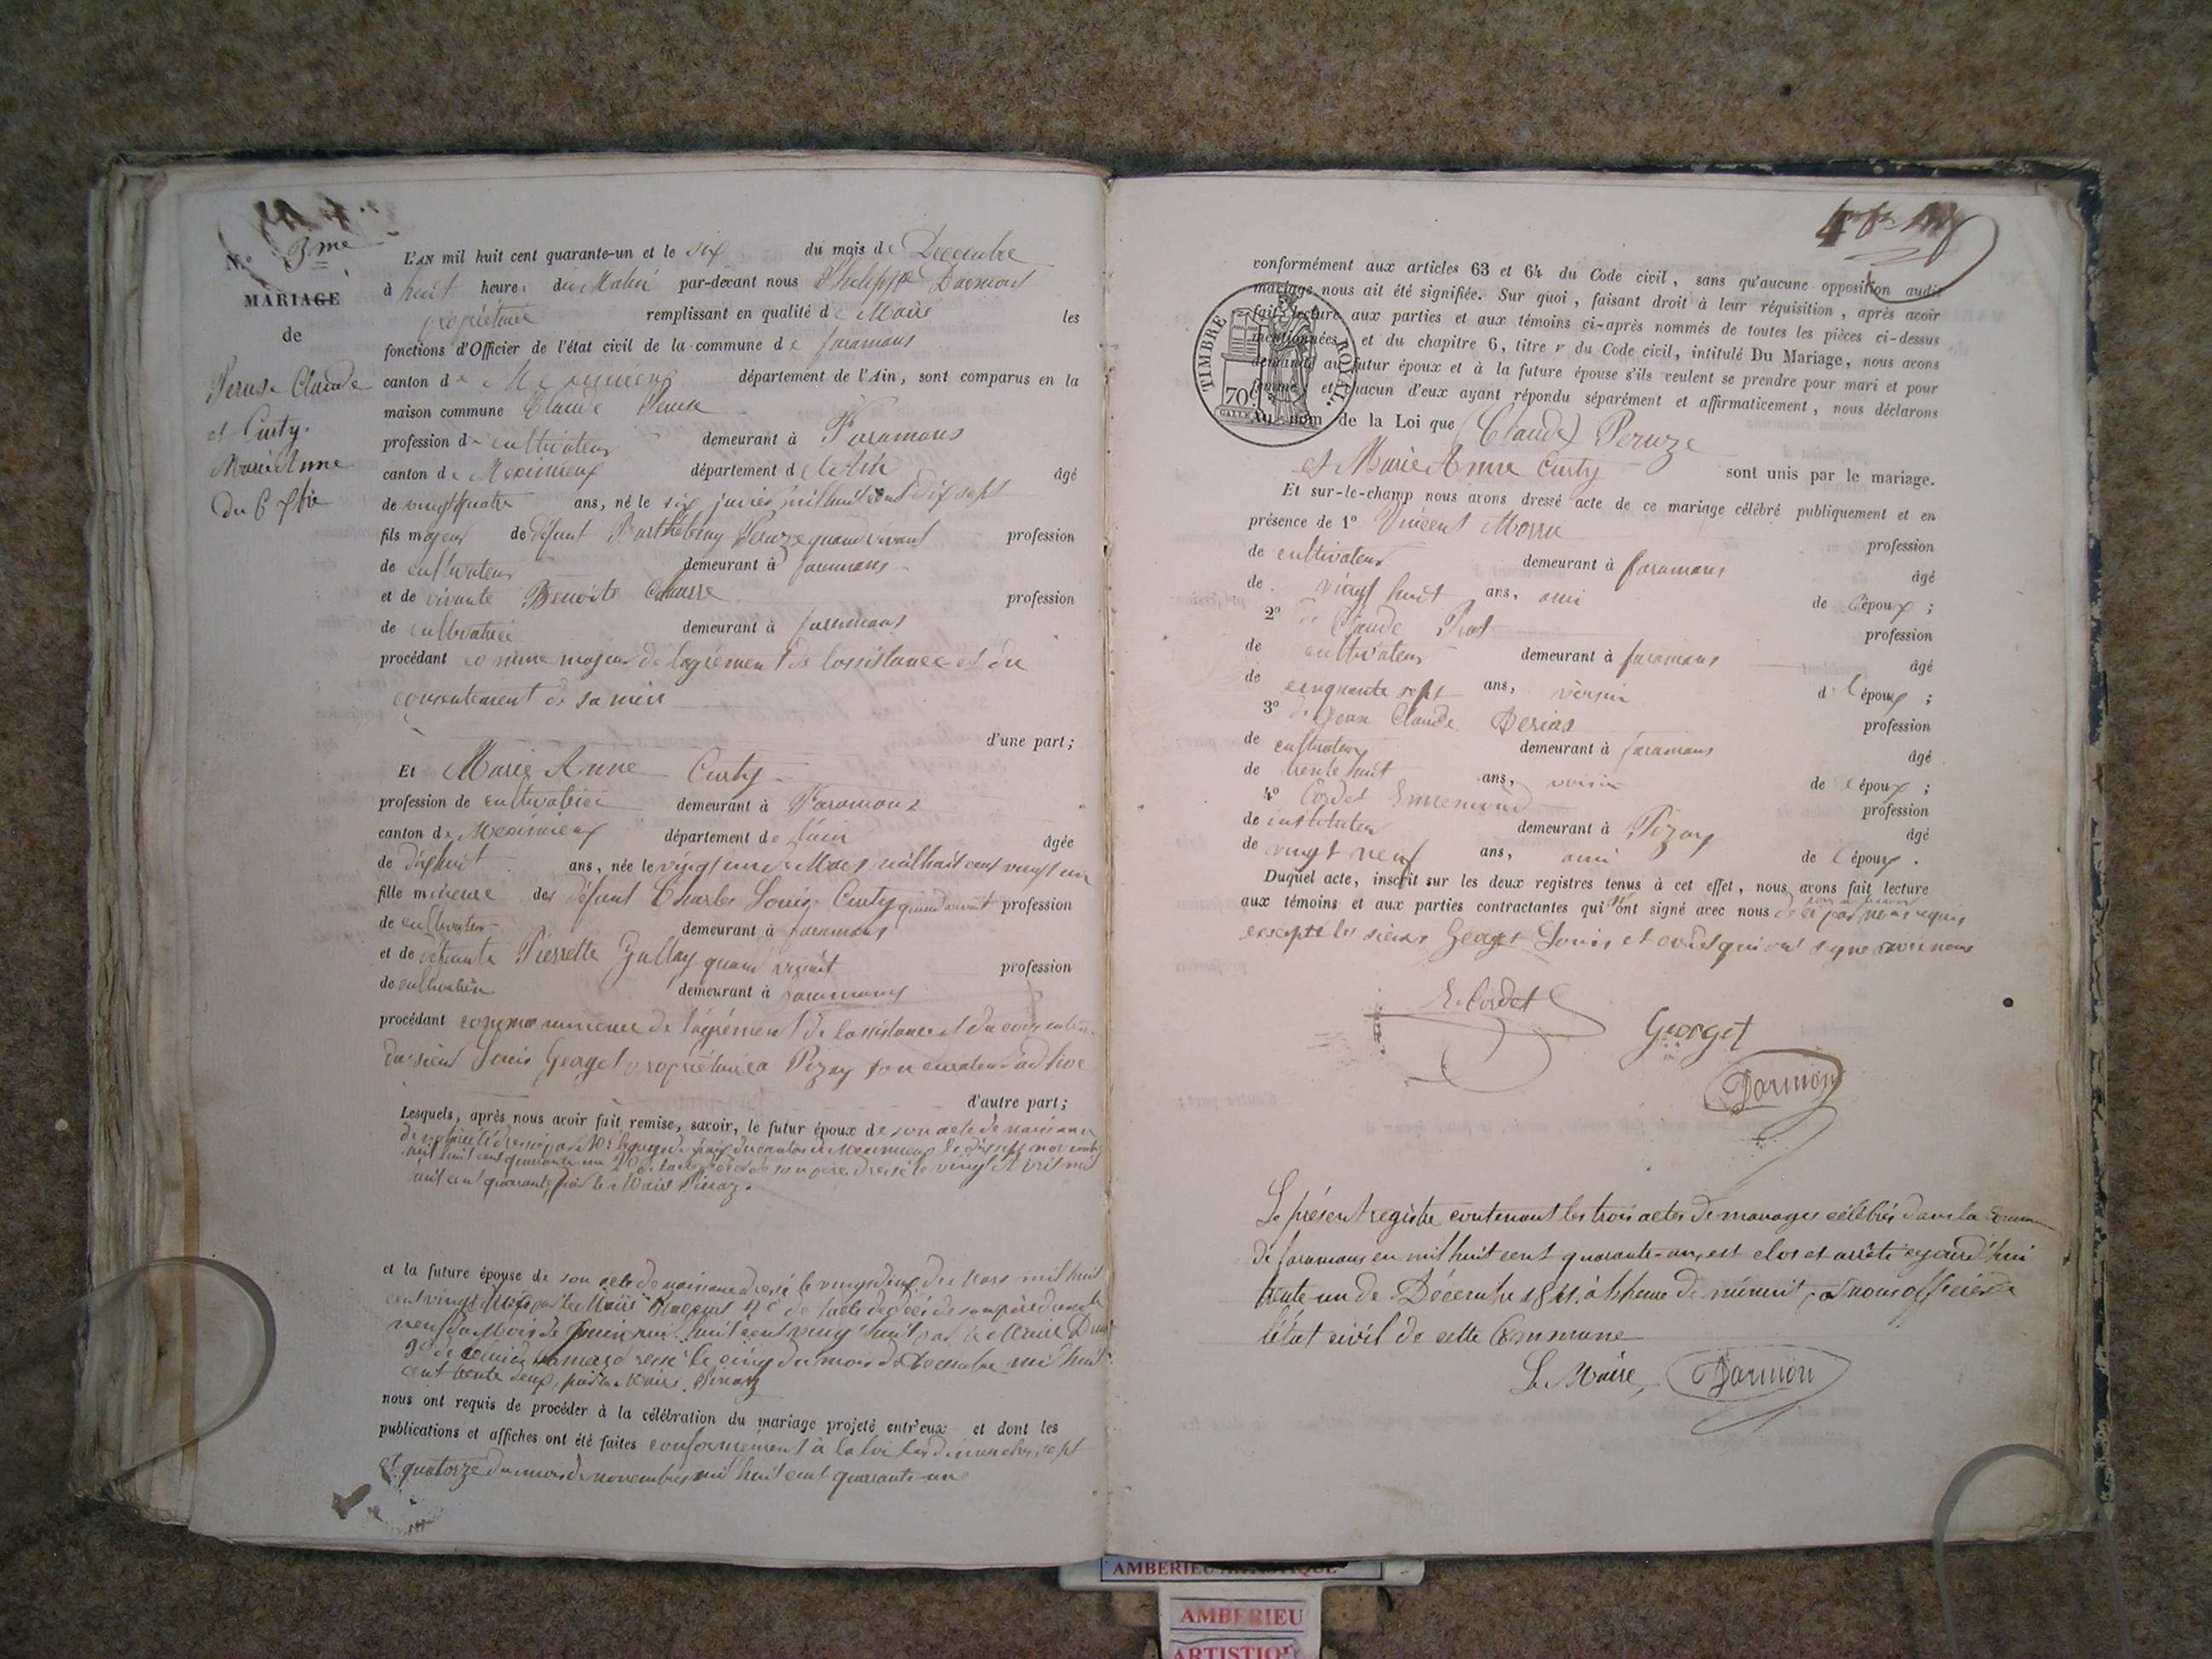 N.° 3me
MARIAGE
de
Peruse Claude
et Curty
Marie Anne
du 6 Xbre
L'AN mil huit cent quarante-un et le six du mois de Decembre
à huit heures du Matin par-devant nous Philippe Darmont
propriétaire remplissant en qualité de Maire les
fonctions d'Officier de l'état civil de la commune de faramans
canton de Meximieux département de l'Ain, sont comparus en la
maison commune Claude Peruse
profession de cultivateur demeurant à Faramans
canton de Meximieux département de l'Ain âgé
de vingt quatre ans, né le six mil huit cent dix sept
fils majeur de défunt Barthélemy Peruze quand vivant profession
de cultivateur demeurant à faramans
et de vivante Benoite profession
de cultivatrice demeurant à faramans
procédant comme majeur de l'agrément de l'assistance et du
consentement de sa mère
d'une part;
Et Marie Anne Curty
profession de cultivatrice demeurant à Faramans
canton de Meximieux département de l'ain âgée
de dix huit ans, née le vingt un Mars mil huit cent vingt un
fille mineure des défunt Charles Louis Curty quand vivant profession
de cultivateur demeurant à faramans
et de défunte Pierrette quand vivait profession
de cultivatrice demeurant à faramans
procédant comme mineure de l'agrément de l'assistance et du
du sieur Louis Georget propriétaire à Pizay son curateur
d'autre part;
Lesquels, après nous avoir fait remise, savoir, le futur époux de son acte de naissance
de notoriété juge de paix du canton de Meximieux le dix sept novembre
mil huit cent quarante un 2° de l'acte de décès de son père dressé le vingt avril mil
huit cent quarante par le Maire
et la future épouse de son acte de naissance dressé le vingt deux du Mars mil huit
cent vingt par le Maire 2° de l'acte de décès de son père dressé le
neuf du Mois de Juin mil huit cent vingt huit par le Maire
3° de celui de sa mère dressé le cinq du mois de Decembre mil huit
cent trente deux, par le Maire
nous ont requis de procéder à la célébration du mariage projeté entr'eux et dont les
publications et affiches ont été faites conformément à la loi les dimanches sept
et quatorze du mois de novembre mil huit cent quarante-un
conformément aux articles 63 et 64 du Code civil, sans qu'aucune opposition audit
mariage nous ait été signifiée. Sur quoi, faisant droit à leur réquisition, après avoir
fait lecture aux parties et aux témoins ci-après nommés de toutes les pièces ci-dessus
mentionnées, et du chapitre 6, titre v du Code civil, intitulé Du Mariage, nous avons
demandé au futur époux et à la future épouse s'ils veulent se prendre pour mari et pour
femme, et chacun d'eux ayant répondu séparément et affirmativement, nous déclarons
Au nom de la Loi que Claude Peruze
et Marie Anne Curty sont unis par le mariage.
TIMBRE ROYAL.
70c
Et sur-le-champ nous avons dressé acte de ce mariage célébré publiquement et en
présence de 1° Vincent profession
de cultivateur demeurant à faramans âgé
de vingt huit ans, ami de l'époux;
2° Claude Prat profession
de cultivateur demeurant à faramans âgé
de cinquante sept ans, voisin de l'époux;
3° Jean Claude profession
de cultivateur demeurant à faramans âgé
de trente huit ans, voisin de l'époux;
4° Cordet Ennemond profession
de instituteur demeurant à Pizay âgé
de vingt neuf ans, ami de l'époux.
Duquel acte, inscrit sur les deux registres tenus à cet effet, nous avons fait lecture
aux témoins et aux parties contractantes qui n'ont signé avec nous de ce par nous requis
excepté les sieurs Georget Louis et cordet qui ont signé avec nous
E. Cordet
Georget
Darmon
Le présent registre contenant les trois actes de mariages célébrés dans la Commune
de faramans en mil huit cent quarante-un, est clos et arrêté aujourd'hui
trente un de Décembre 1841. à l'heure de minuit, par nous officier de
l'état civil de cette Commune
Le Maire, Darmon
AMBERIEU ARTISTIQUE
AMBERIEU
ARTISTIQUE